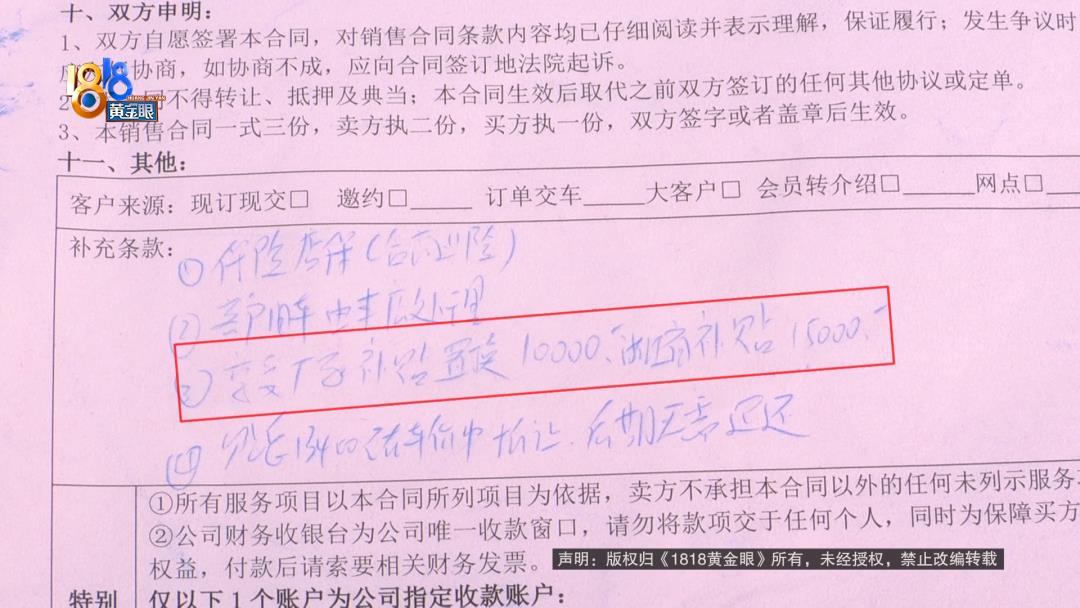 十、双方申明：
1、双方自愿签署本合同，对销售合同条款内容均已仔细阅读并表示理解，保证履行；发生争议时
协商，如协商不成，应向合同签订地法院起诉。
2 同不得转让、抵押及典当；本合同生效后取代之前双方签订的任何其他协议或定单。
3、本销售合同一式三份，卖方执二份，买方执一份，双方签字或者盖章后生效。
1818
黄金眼
十一、其他：
客户来源：现订现交□ 邀约□_____ 订单交车_____大客户□ 会员转介绍□_____网点□
补充条款：
①保险店保（含商业险）
② 旧车由车商处理
③享受厂家补贴置换10000.- 浙商补贴15000.-
④ 13400 在车价中 让.后期无需退还
①所有服务项目以本合同所列项目为依据，卖方不承担本合同以外的任何未列示服务
②公司财务收银台为公司唯一收款窗口，请勿将款项交于任何个人，同时为保障买方
权益，付款后请索要相关财务发票。
声明：版权归《1818黄金眼》所有，未经授权，禁止改编转载
特别
仅以下1个账户为公司指定收款账户：